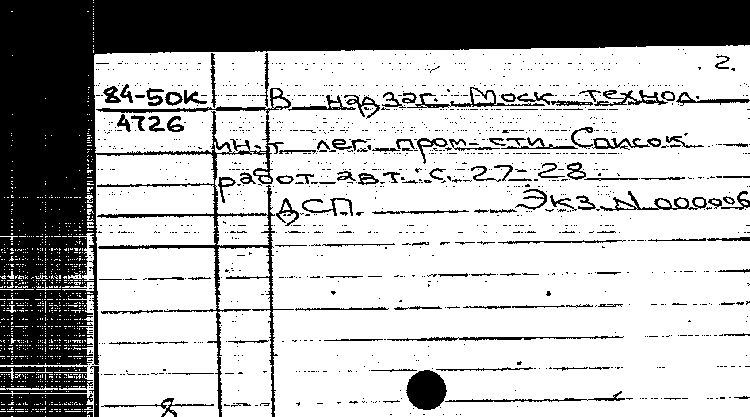 2.
84-50К В надзаг.: Моск. технол.
4726
ин-т лег. пром-сти. Список
работ авт.: с. 27-28.
ДСП. Экз. N 000006
8